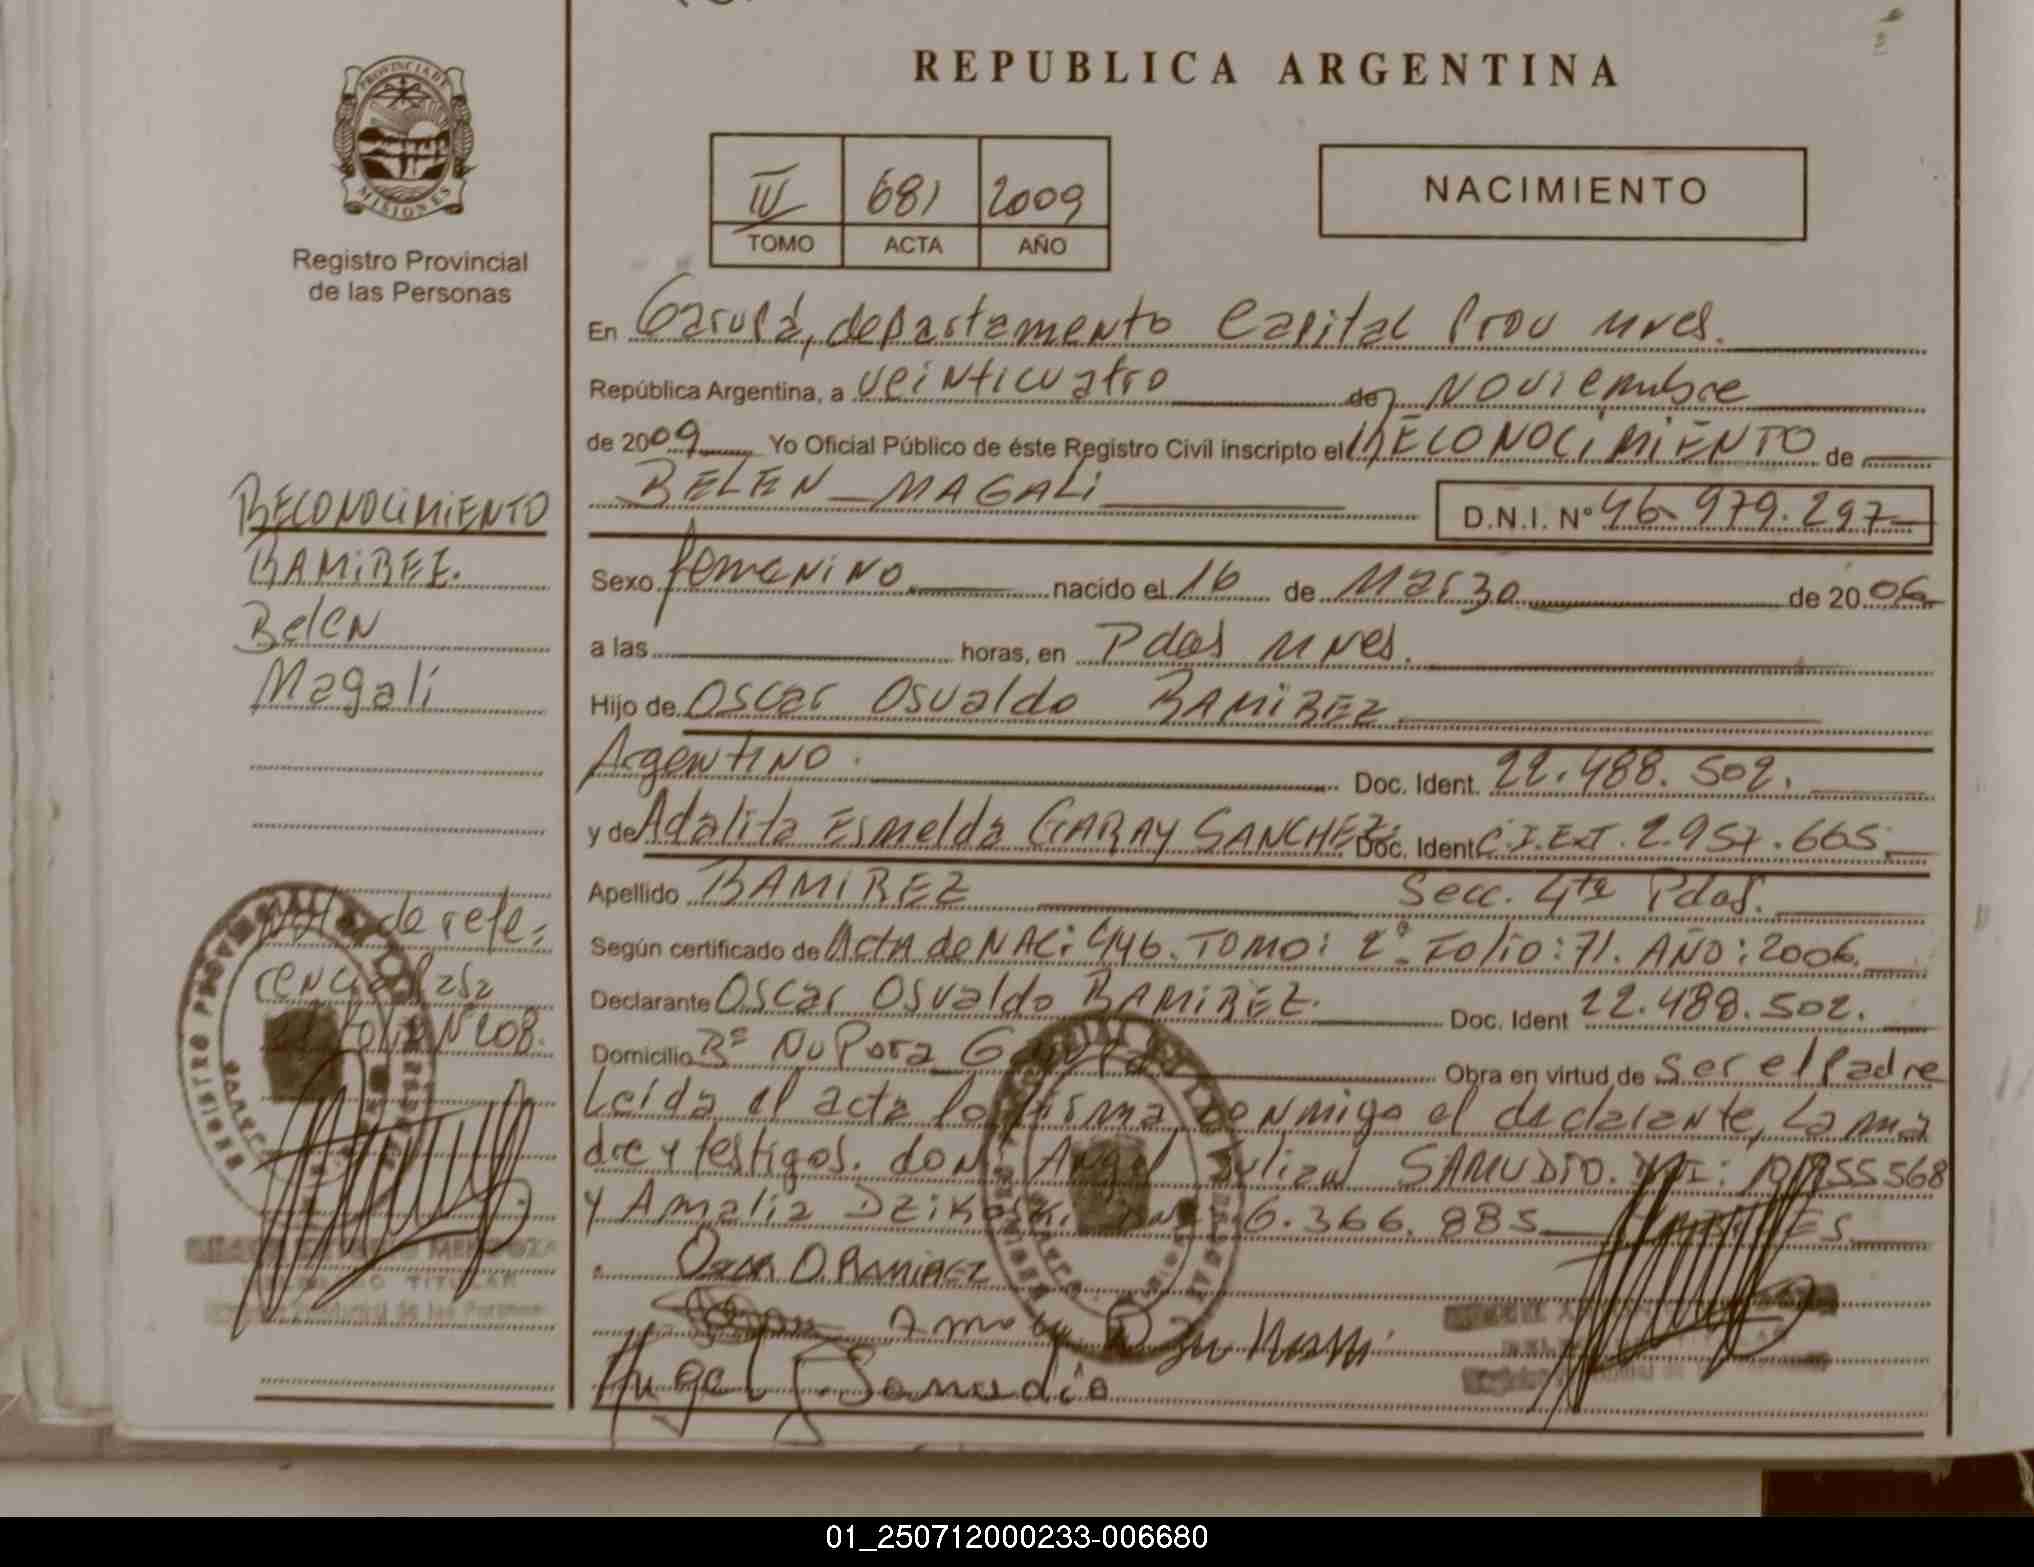 REPUBLICA ARGENTINA
PROVINCIA DE
MISIONES
Registro Provincial
de las Personas
IV 681 2009
TOMO ACTA AÑO
NACIMIENTO
En Garupá, departamento Capital Prov Mnes.
República Argentina, a veinticuatro de Noviembre
de 2009 Yo Oficial Público de éste Registro Civil inscripto el RECONOCIMIENTO de
BELEN MAGALI
D.N.I. Nº 46.979.297
Sexo femenino nacido el 16 de Marzo de 2006
a las horas, en Pdas Mnes.
Hijo de Oscar Osvaldo RAMIREZ
Argentino. Doc. Ident. 22.488.502.
y de Adalita Esmelda GARAY SANCHEZ Doc. Ident C.I.EXT. 2.957.665
Apellido RAMIREZ Secc. 4ta Pdas.
Según certificado de Acta de NAC: 446. TOMO: 2º. Folio: 71. AÑO: 2006.
Declarante Oscar Osvaldo RAMIREZ. Doc. Ident 22.488.502.
Domicilio Bº Nu Pora Garupa Obra en virtud de Ser el Padre
Leída el acta la firma conmigo el declarante, la ma
dre y testigos. don Angel Julian SAMUDIO.
y Amalia 6.366.885
Oscar O. RAMIREZ
Angel J. Samudio
RECONOCIMIENTO
RAMIREZ.
Belen
Magali
Nota de refe=
rencia Pasa
al folio Nº 208.
MENDOZA
TITULAR
01_250712000233-006680